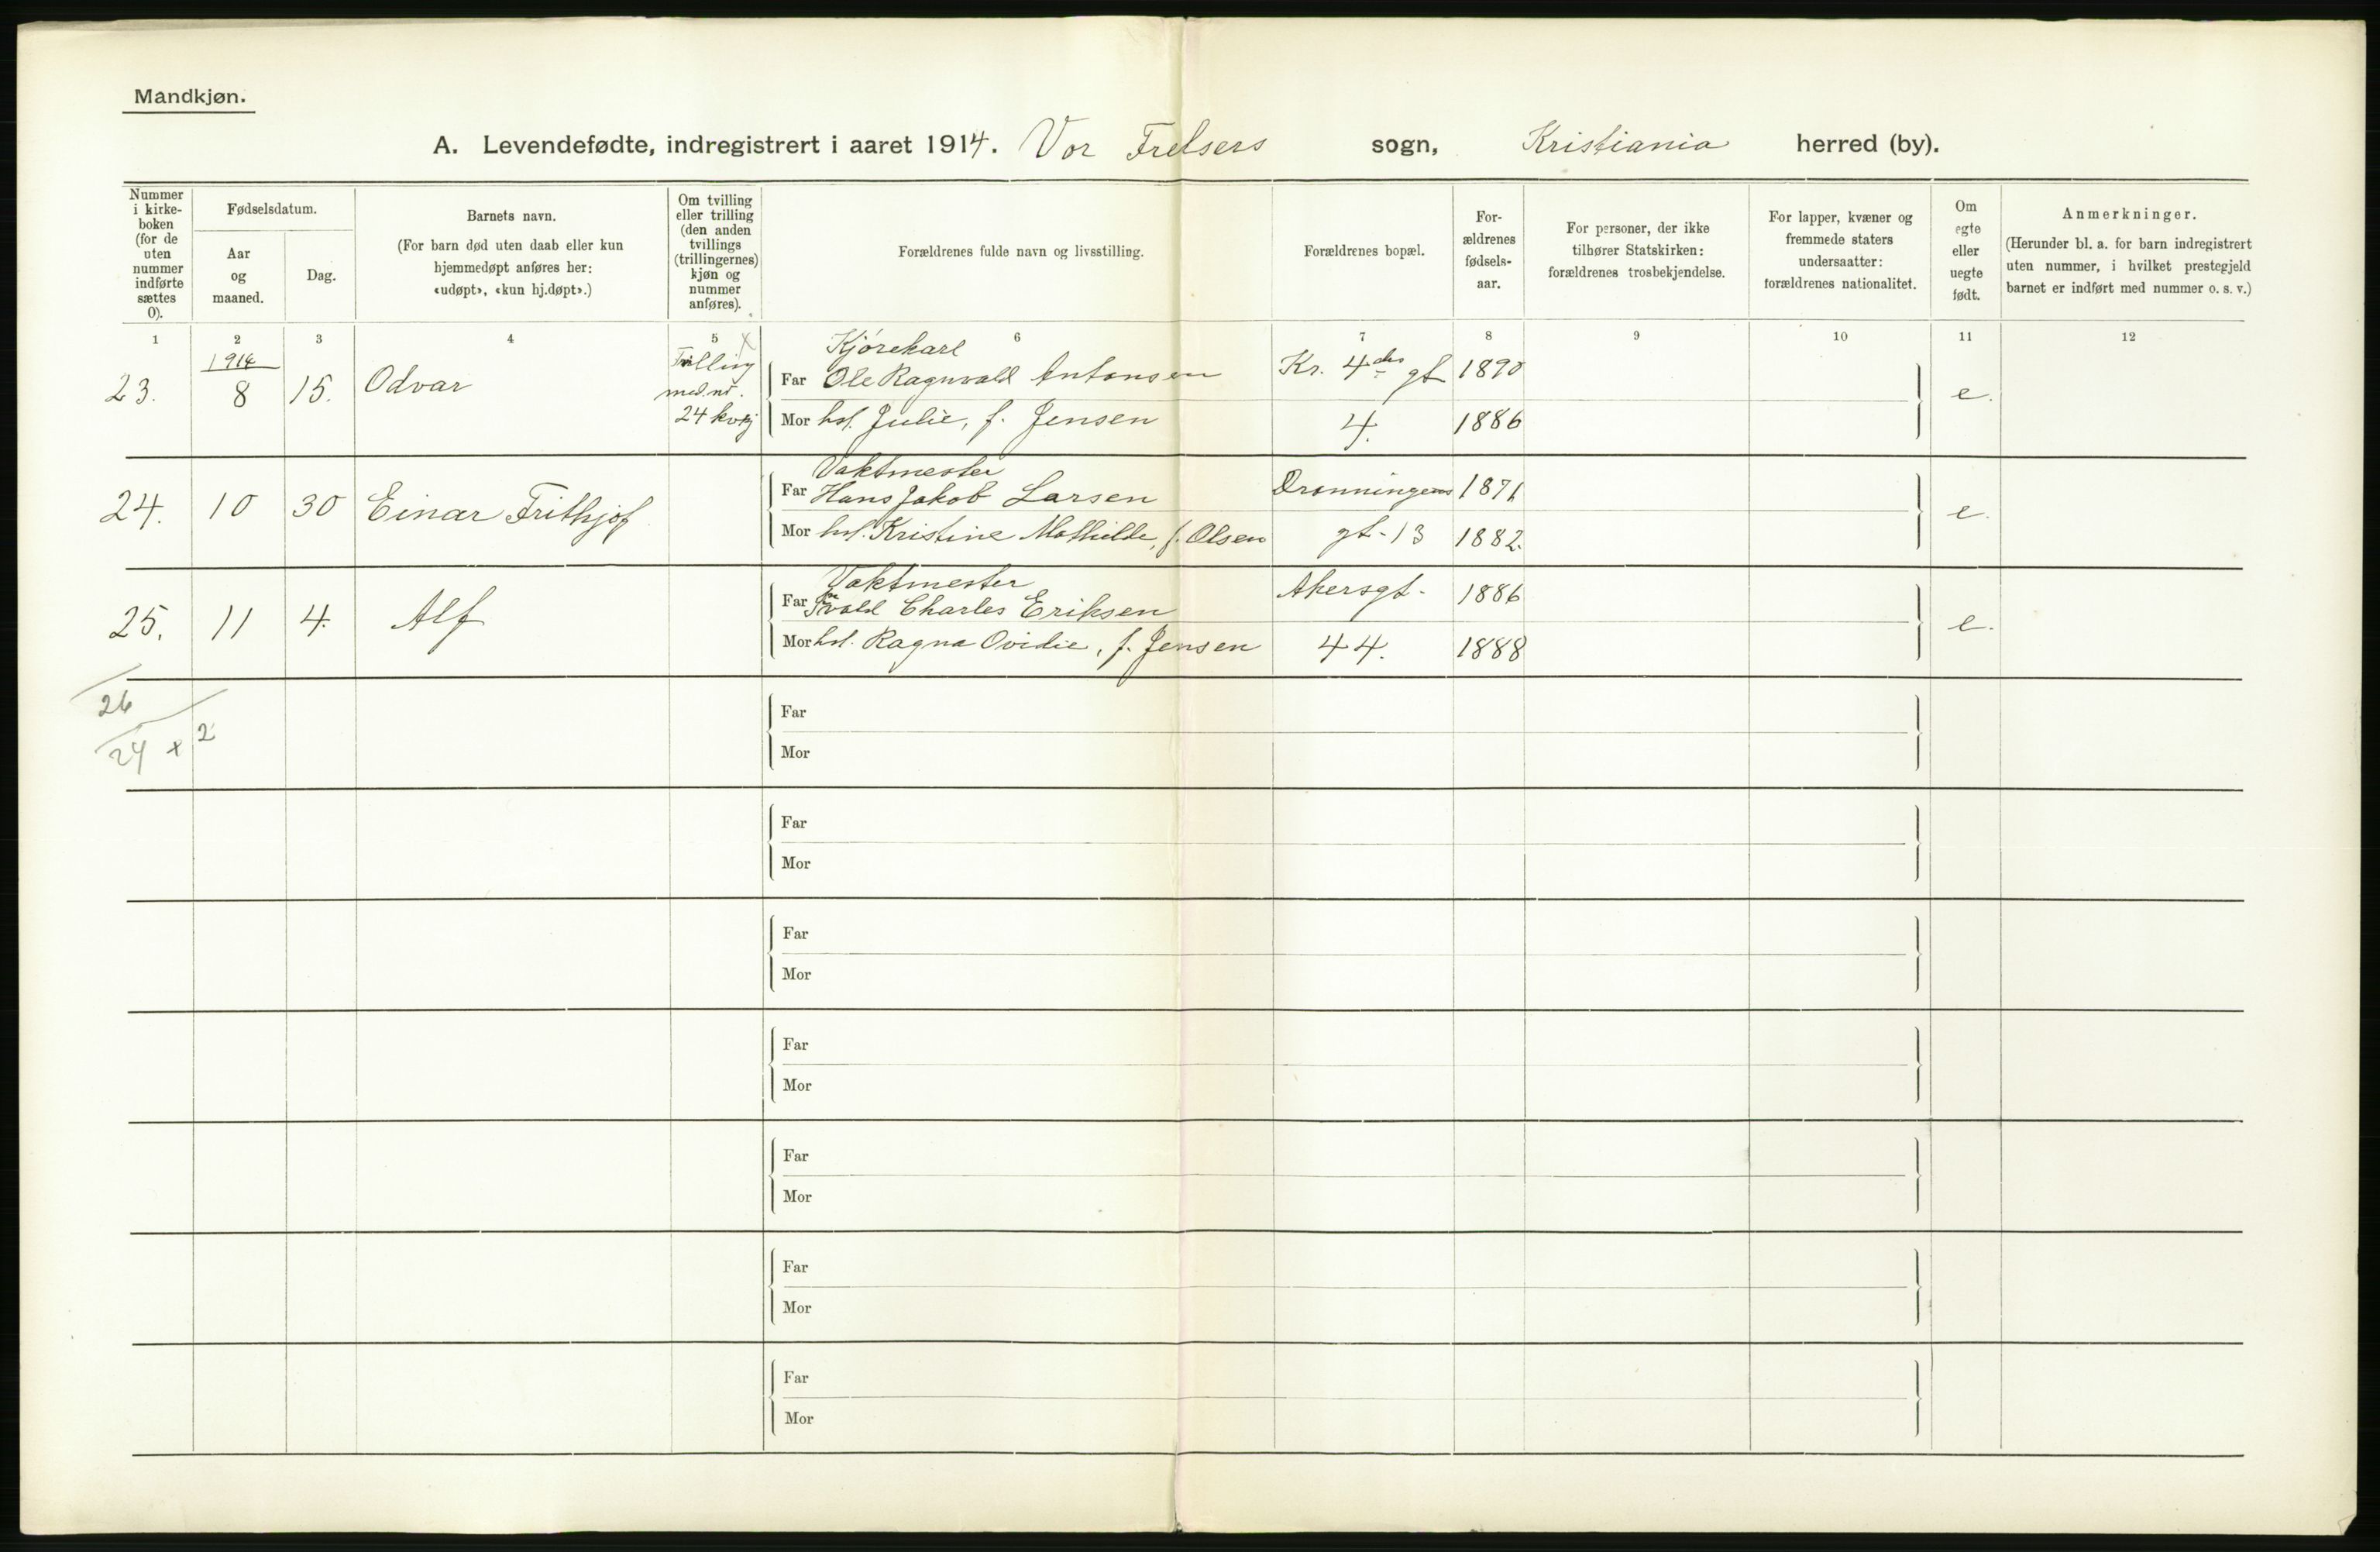 Mandkjøn.
A. Levendefødte, indregistrert i aaret 1914. Vor Frelsers sogn, Kristiania herred (by).
Nummer
i kirke-
boken
(for de
uten
nummer
indførte
sættes
0).
Fødselsdatum.
Aar
og
maaned.
Dag.
Barnets navn.
(For barn død uten daab eller kun
hjemmedøpt anføres her:
«udøpt», «kun hj.døpt».)
Om tvilling
eller trilling
(den anden
tvillings
(trillingernes)
kjøn og
nummer
anføres).
Forældrenes fulde navn og livsstilling.
Forældrenes bopæl.
For-
ældrenes
fødsels-
aar.
For personer, der ikke
tilhører Statskirken:
forældrenes trosbekjendelse.
For lapper, kvæner og
fremmede staters
undersaatter:
forældrenes nationalitet.
Om
egte
eller
uegte
født.
Anmerkninger.
(Herunder bl. a. for barn indregistrert
uten nummer, i hvilket prestegjeld
barnet er indført med nummer o. s. v.)
1 2 3 4 5 6 7 8 9 10 11 12
1914
23. 8 15. Odvar
Tvilling
med nr.
24 kvkj
Kjørekarl
Far Ole Ragnvald Antonsen Kr. 4des gt 1890
Mor hst. Julie, f. Jensen 4. 1886
e.
24. 10 30 Einar Frithjof
Vaktmester
Far Hans Jakob Larsen Dronningens 1871
Mor hst. Kristine Mathilde, f. Olsen gt. 13 1882.
e.
25. 11 4. Alf
Vaktmester
Far Charles Eriksen Akersgt. 1886
Mor hst. Ragna Ovidie, f. Jensen 44. 1888
e.
26
24 + 2
Far
Mor
Far
Mor
Far
Mor
Far
Mor
Far
Mor
Far
Mor
Far
Mor